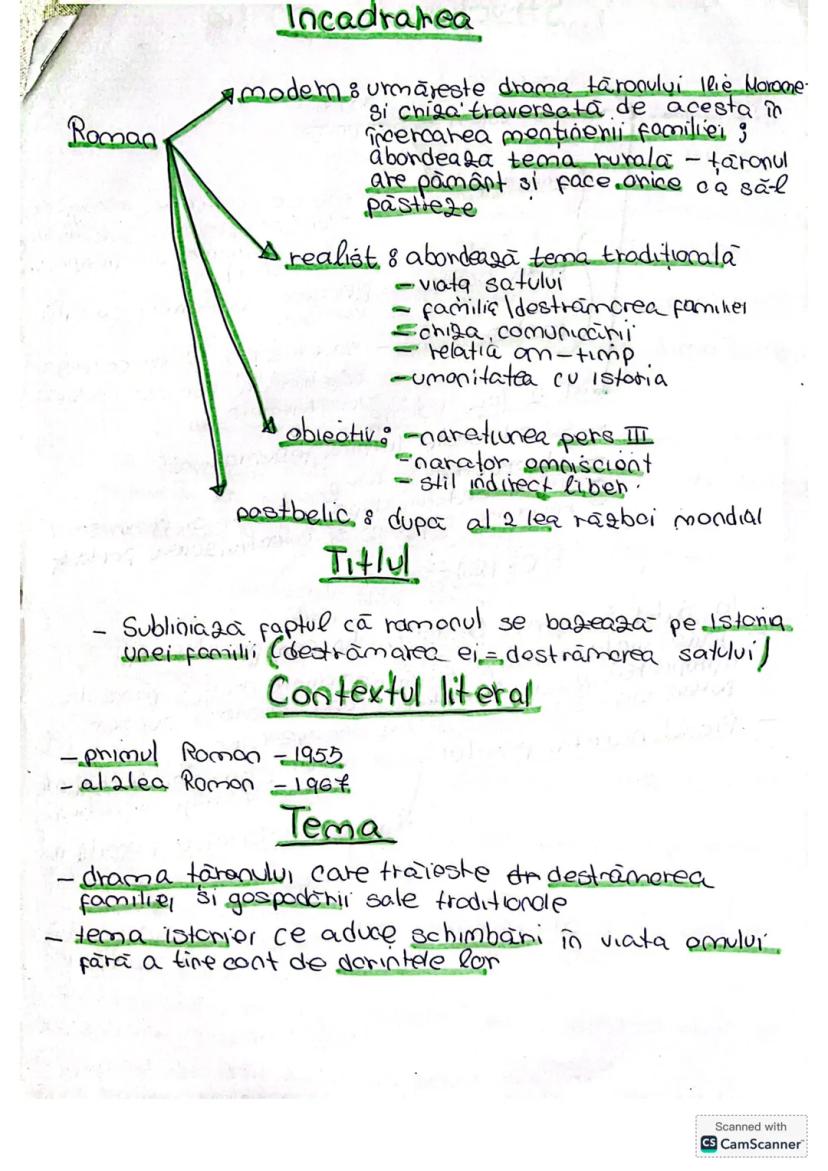 Incadrarea
Roman
modern : urmărește drama țăranului Ilie Morome-
și criza traversată de acesta în
încercarea menținerii familiei ;
abordeaza tema rurală - țăranul
are pământ și face orice ca să-l
păstreze
realist : abordează tema tradițională
- viața satului
- familia \ destrămarea familiei
- criza comunicării
- relația om-timp
- umanitatea cu istoria
obiectiv : - narațiunea pers III
- narator omniscient
- stil indirect liber.
postbelic : dupa al 2 lea război mondial
Titlul
- Subliniază faptul că ramonul se bazează pe Istoria
unei familii (destrămarea ei = destrămarea satului)
Contextul literal
- primul Roman - 1955
- al 2 lea Roman - 1967
Tema
- drama țăranului care trăiește destrămarea
familiei și gospodării sale traditionale
- tema istoriei ce aduce schimbări în viata omului
fără a tine cont de dorintele lor
Scanned with
CS CamScanner